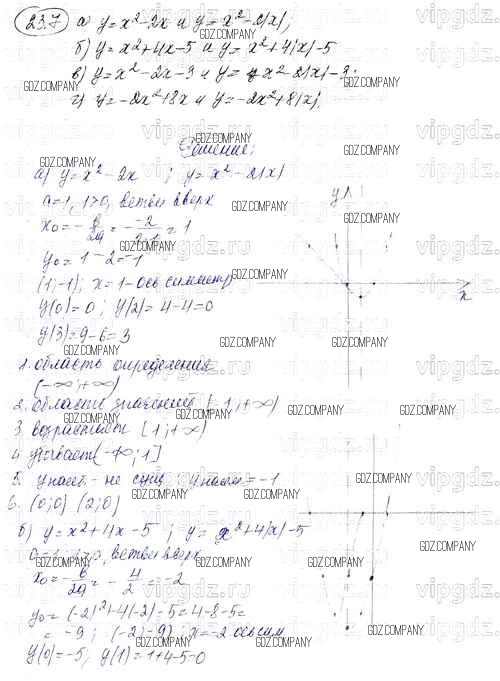 23.7 а) y = x² - 2x и y = x² - 2|x|;
б) y = x² + 4x - 5 и y = x² + 4|x| - 5
в) y = x² - 2x - 3 и y = x² - 2|x| - 3;
г) y = -2x² + 8x и y = -2x² + 8|x|.
Решение:
а) y = x² - 2x ; y = x² - 2|x|
a = 1, 1>0, ветви вверх
x₀ = -b/2a = -(-2)/2·1 = 1
y₀ = 1 - 2 = -1
(1; -1); x = 1 - ось симметр
y(0) = 0 ; y(2) = 4 - 4 = 0
y(3) = 9 - 6 = 3
1. область определения
(-∞; +∞)
2. область значений [-1; +∞)
3 возрастает [1; +∞)
4 убывает (-∞; 1]
5. yнаиб - не сущ ; yнаим = -1
6. (0; 0) (2; 0)
б) y = x² + 4x - 5 ; y = x² + 4|x| - 5
ветви вверх
x₀ = -b/2a = -4/2 = -2
y₀ = (-2)² + 4(-2) - 5 = 4 - 8 - 5 =
= -9 ; (-2; -9) ; x = -2 ось сим
y(0) = -5; y(1) = 1 + 4 - 5 = 0
y
x
GDZ.COMPANY
vipgdz.ru